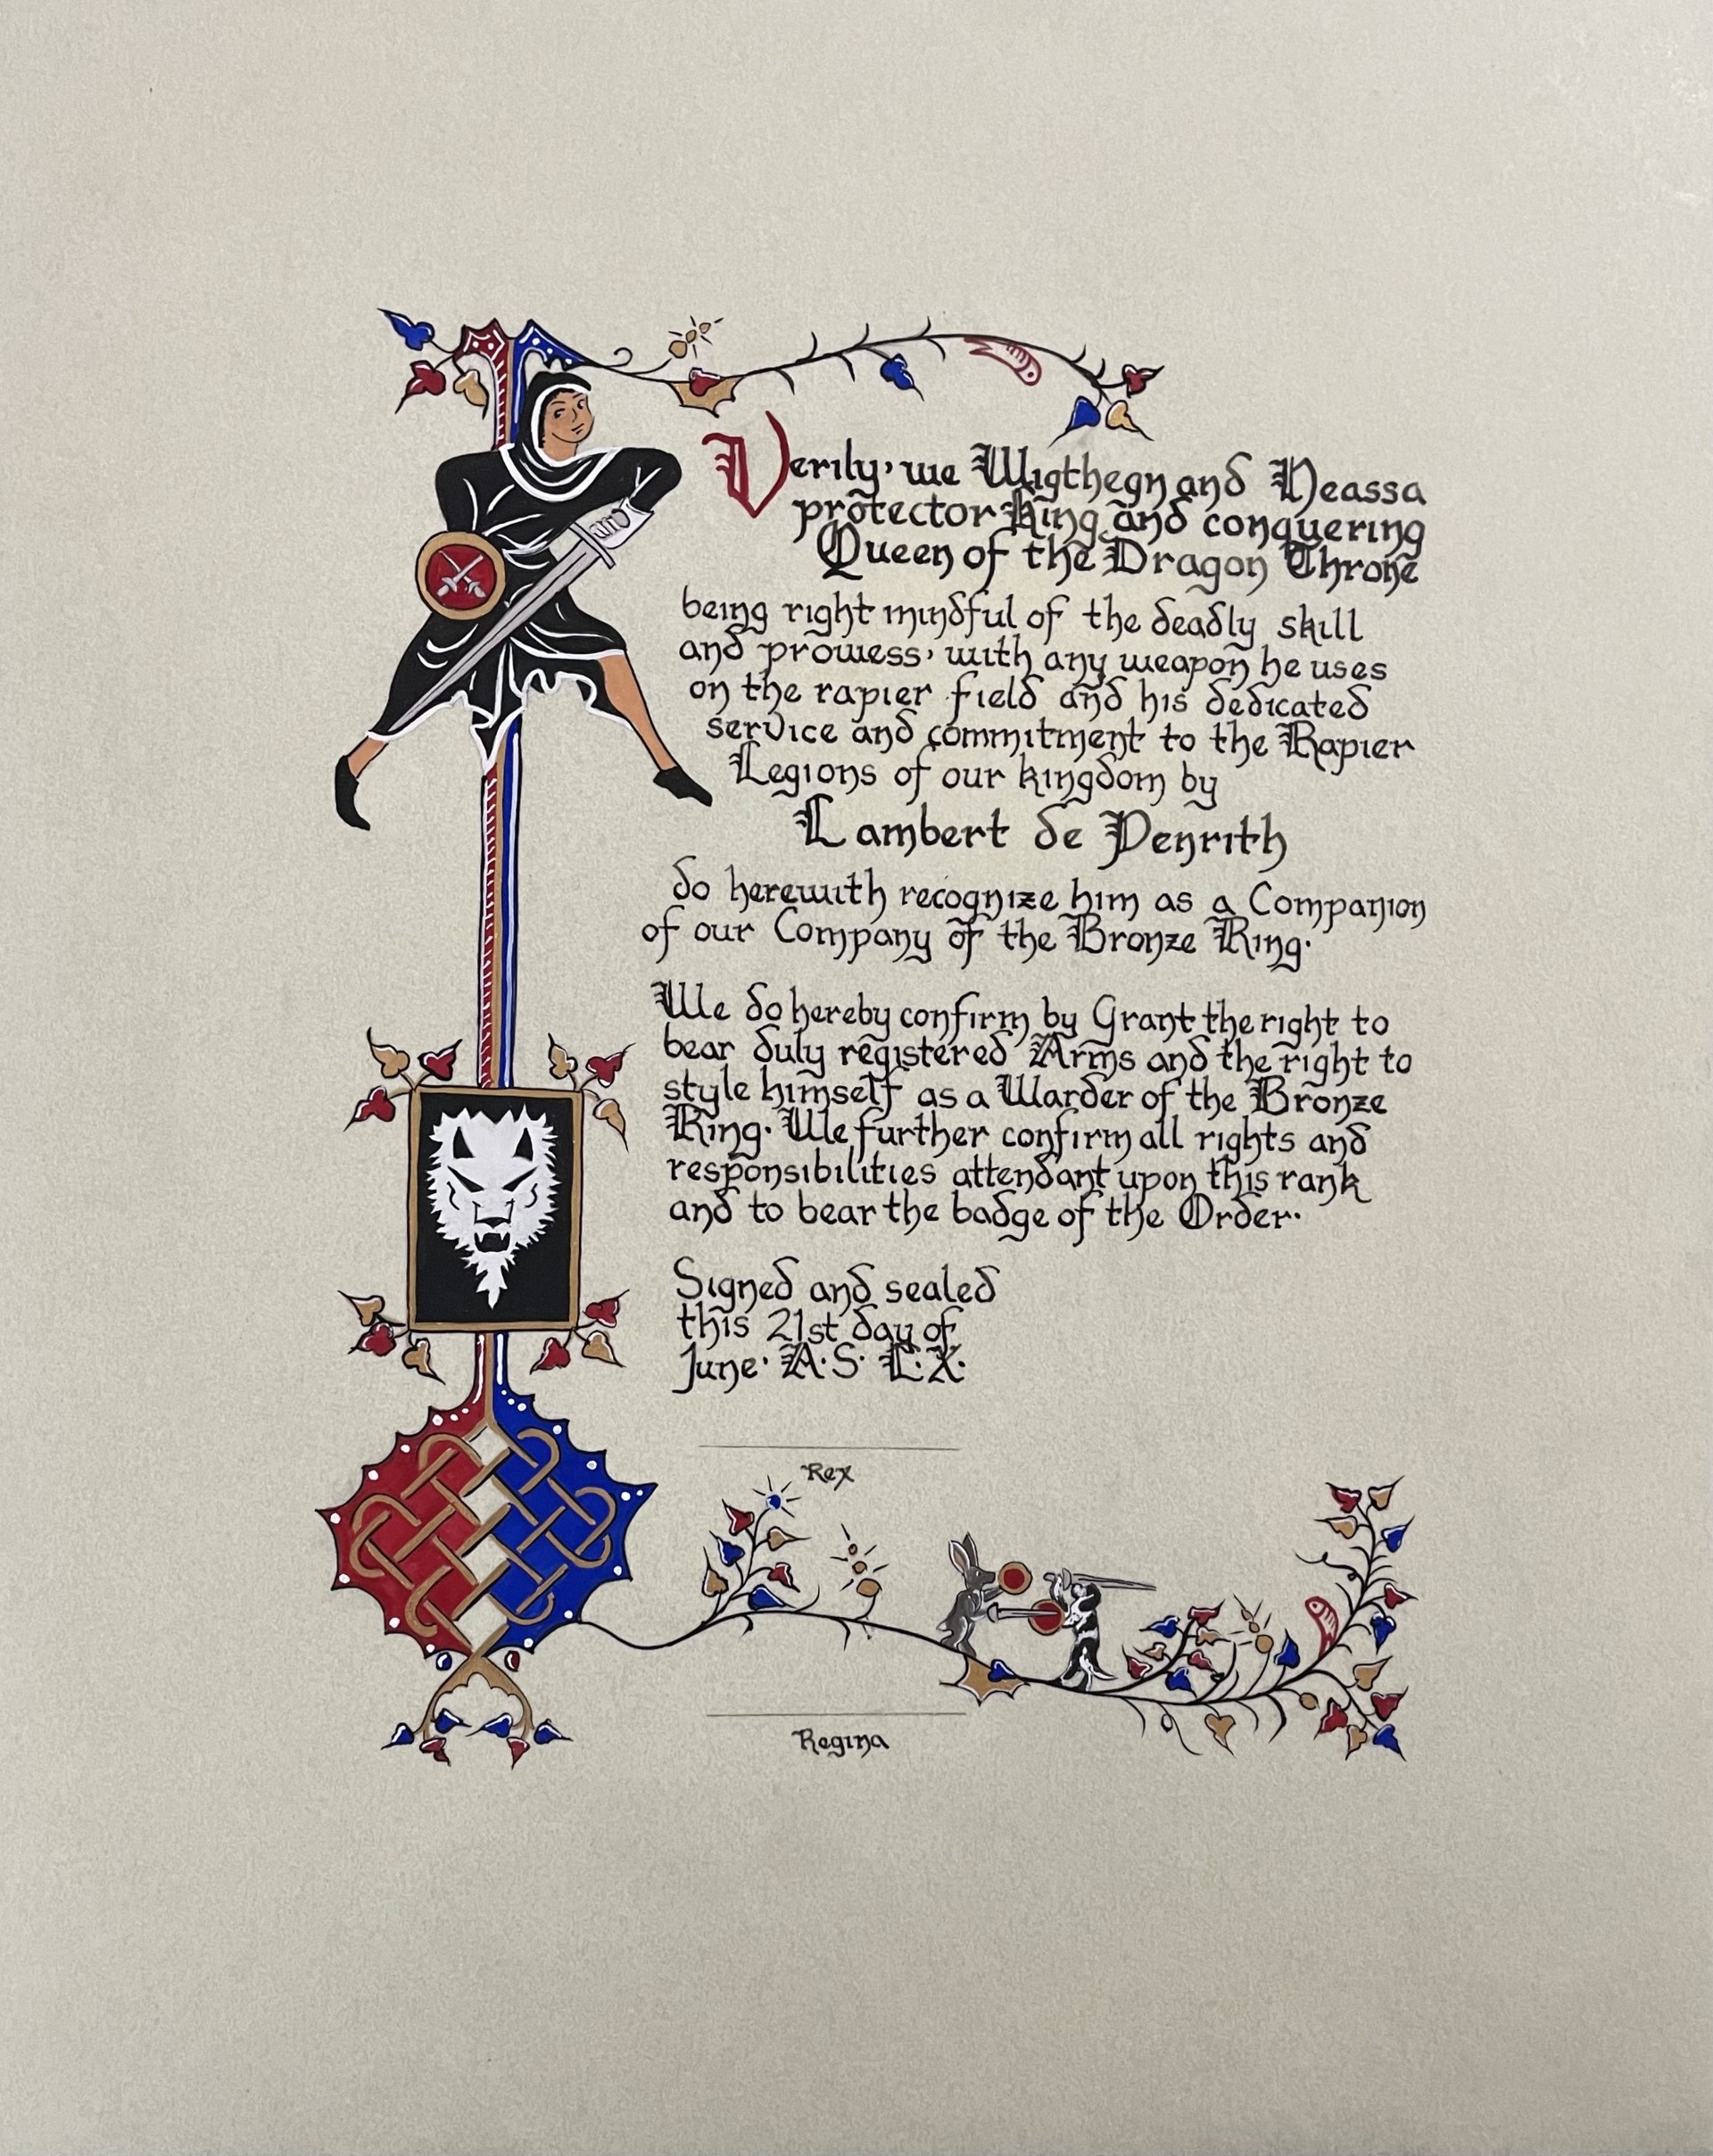 Verily, we Wigthegn and Neassa
protector King and conquering
Queen of the Dragon Throne
being right mindful of the deadly skill
and prowess, with any weapon he uses
on the rapier field and his dedicated
service and commitment to the Rapier
Legions of our kingdom by
Lambert de Penrith
do herewith recognize him as a Companion
of our Company of the Bronze Ring.
We do hereby confirm by Grant the right to
bear duly registered Arms and the right to
style himself as a Warder of the Bronze
Ring. We further confirm all rights and
responsibilities attendant upon this rank
and to bear the badge of the Order.
Signed and sealed
this 21st day of
June. A.S. L.X.
Rex
Regina